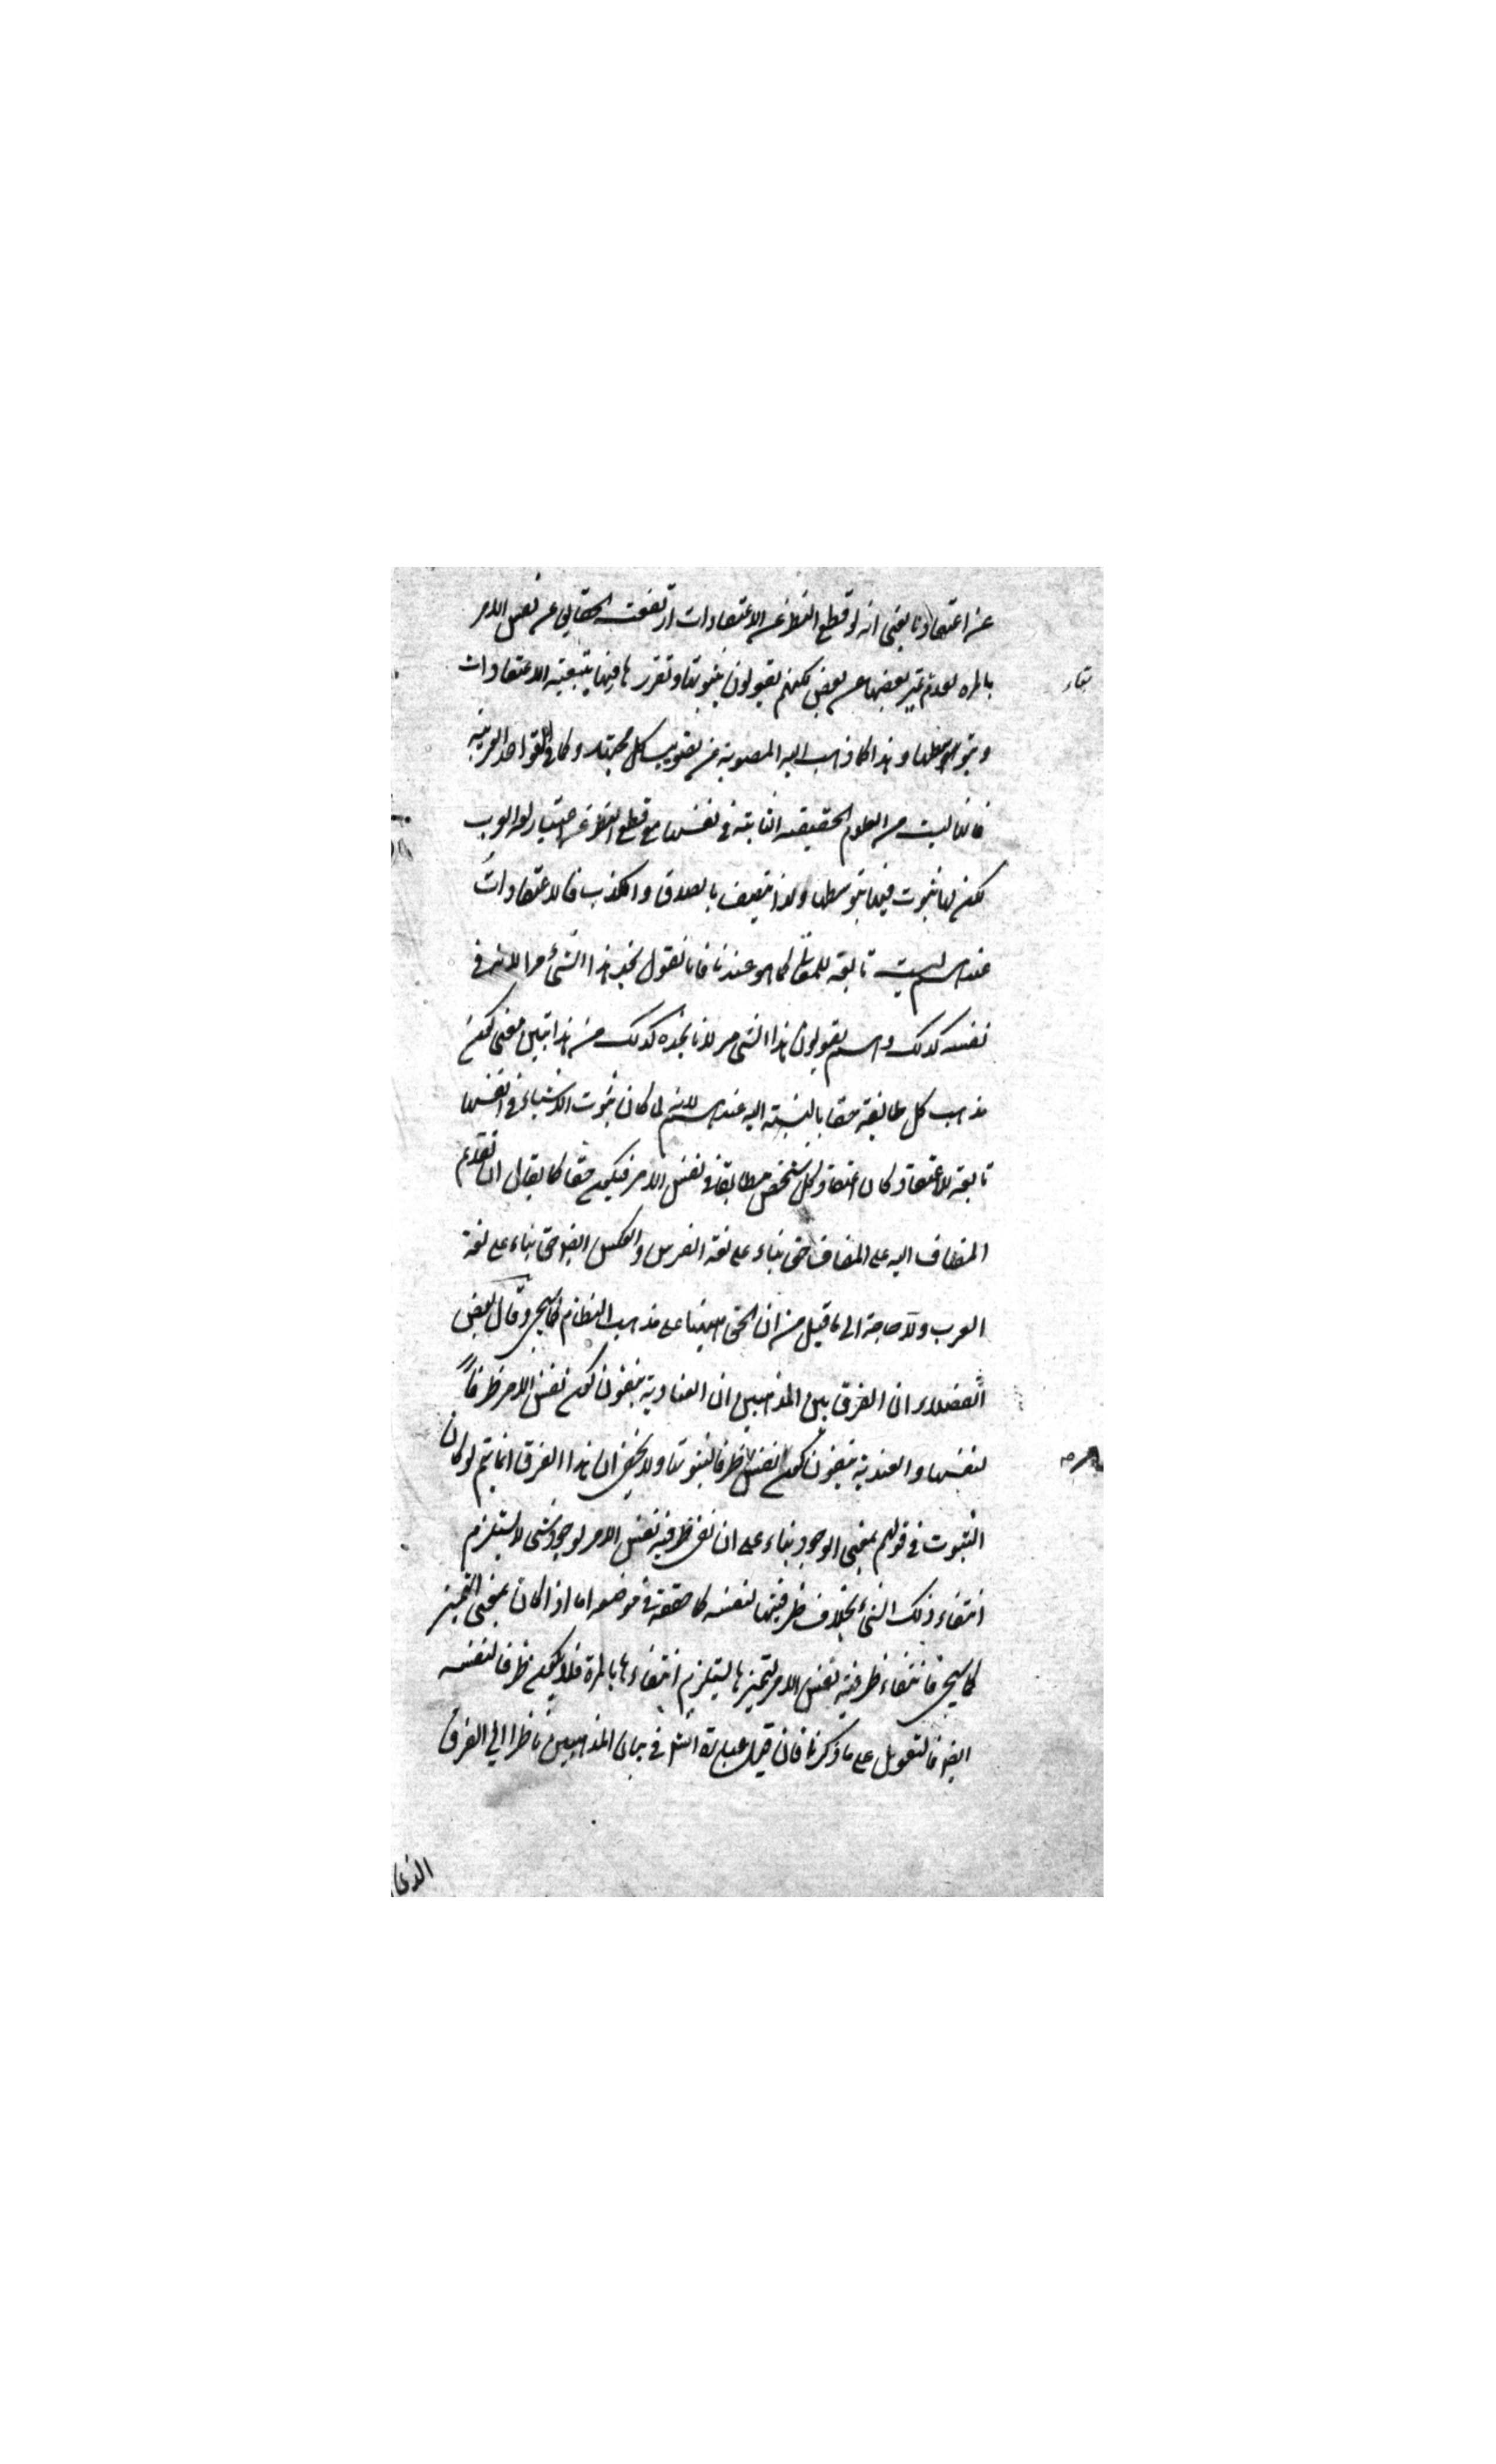 عن اعتقادنا يعنى انه لو قطع النظر عن الاعتقادات ارتفعت الحقايق عن نفس الامر
بالمره لعدم تميز بعضها عن بعض لكنهم يقولون بثبوتها وتقررها فيها بتبعية الاعتقادات
وبتوسطها وهذا كما ذهب اليه المصوبة من تصويب كل مجتهد وكما فى القواعد العربية
فانها ليست من العلوم الحقيقيه الثابتة فى نفسها مع قطع النظر عن اعتبار لغة العرب
لكن لها ثبوت فيها بتوسطها ولذا يتصف بالصدق والكذب فالاعتقادات
عندهم ليست تابعة للمط كما هو عندنا فانا نقول نجد هذا الشئ مرا لانه فى
نفسه كذلك وهم يقولون هذا الشئ مر لانا نجده كذلك من هذا تبين معنى كون
مذهب كل طائفة حقا بالنسبة اليه عندهم لانه لما كان ثبوت الاشياء فى انفسها
تابعة للاعتقاد كان اعتقاد كل شخص مطابقا فى نفس الامر فيكون حقا كما يقال ان تقدم
المضاف اليه على المضاف حق بناء على لغة الفرس والعكس ايضا حق بناء على لغة
العرب ولا حاجة الى ما قيل من ان الحق ههنا على مذهب النظام كما سيجئ وقال بعض
الفضلاء ان الفرق بين المذهبين ان العنادية ينفون كون نفس الامر ظرفاً
لنفسها والعندية ينفون كون نفس ظرفا لثبوتها ولا يخفى ان هذا الفرق انما يتم لو كان
الثبوت فى قولهم بمعنى الوجود بناء على ان نفى ظرفية نفس الامر لوجود شئ لا يستلزم
انتفاء ذلك الشئ بخلاف ظرفيتها لنفسه كما حققه فى موضعه اما اذا كان بمعنى التميز
كما سيجئ فانتفاء ظرفية نفس الامر لتميزها يستلزم انتفاءها بالمرة فلا يكون ظرفا لنفسه
ايضا فالتعويل على ما ذكرنا فان قيل عبارة الش فى بيان المذهبين ناظرا الى الفرق